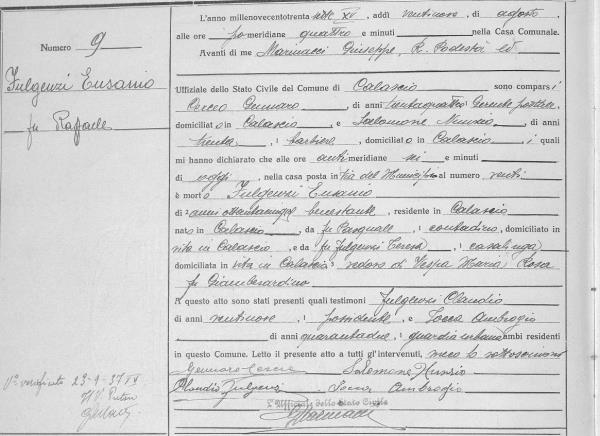 Numero 9
Fulgenzi Eusanio
fu Raffaele
L'anno millenovecentotrenta sette XV, addì ventinove, di agosto
alle ore pomeridiane quattro e minuti nella Casa Comunale.
Avanti di me Marinacci Giuseppe, R. Podestà ed
Uffiziale dello Stato Civile del Comune di Calascio sono comparsi
Cocco Gennaro, di anni trentaquattro Gerente postale,
domiciliato in Calascio e Salomone Nunzio, di anni
trenta, barbiere, domiciliato in Calascio, i quali
mi hanno dichiarato che alle ore antimeridiane sei e minuti
di oggi, nella casa posta in Via del Municipio al numero venti
è morto Fulgenzi Eusanio
di anni benestante, residente in Calascio
nato in Calascio, da fu Pasquale, contadino, domiciliato in
vita in Calascio, e da fu Fulgenzi Teresa, casalinga
domiciliata in vita in Calascio vedovo di Vespa Maria Rosa
fu Gianberardino
A questo atto sono stati presenti quali testimoni Fulgenzi Claudio
di anni ventinove, possidente e Ambrogio
di anni quarantadue, guardia urbana ambi residenti
in questo Comune. Letto il presente atto a tutti gl'intervenuti, meco lo sottoscrivono
Gennaro Salomone Nunzio
Claudio Fulgenzi Ambrogio
L'Uffiziale dello Stato Civile
GMarinacci
Vº verificato 23-9-37 XV